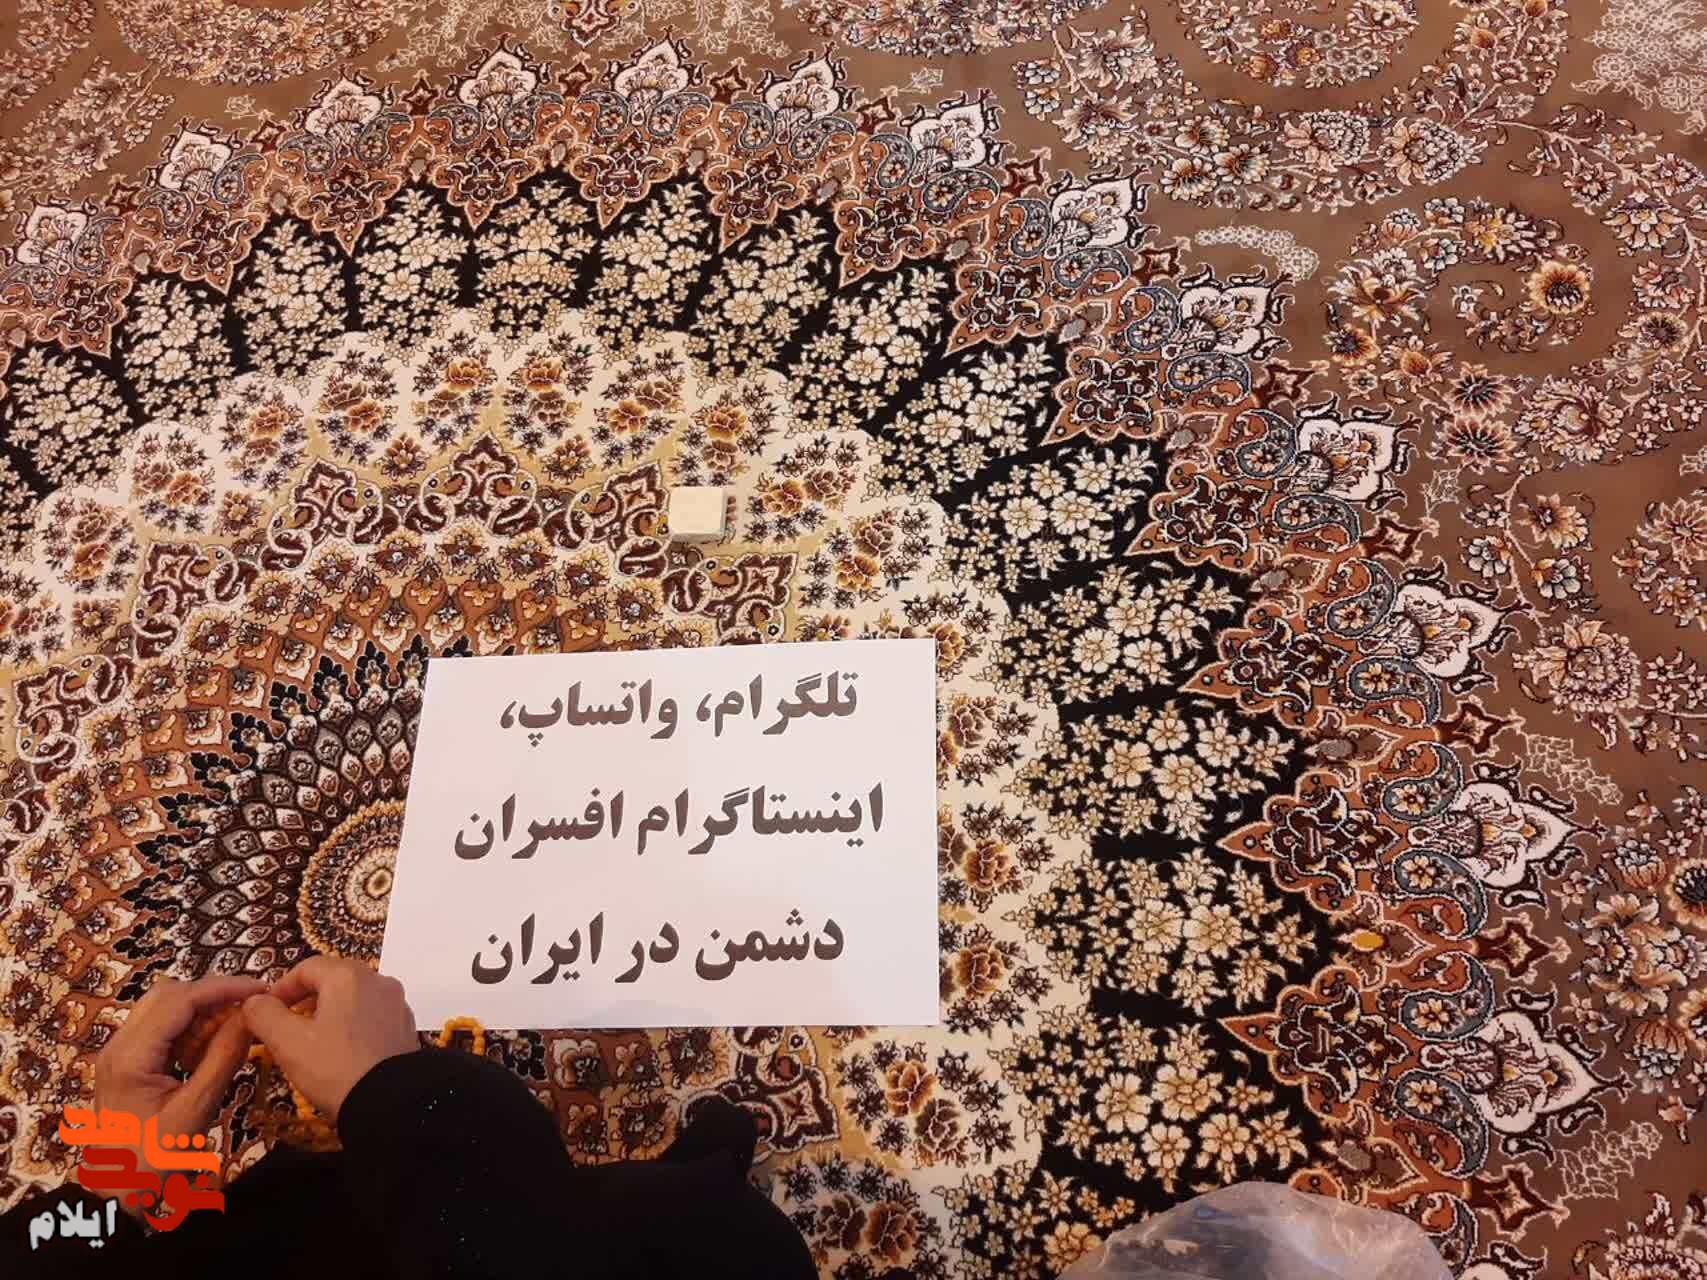 تلگرام، واتساپ،
اینستاگرام افسران
دشمن در ایران
شاهد
نوید
ایلام